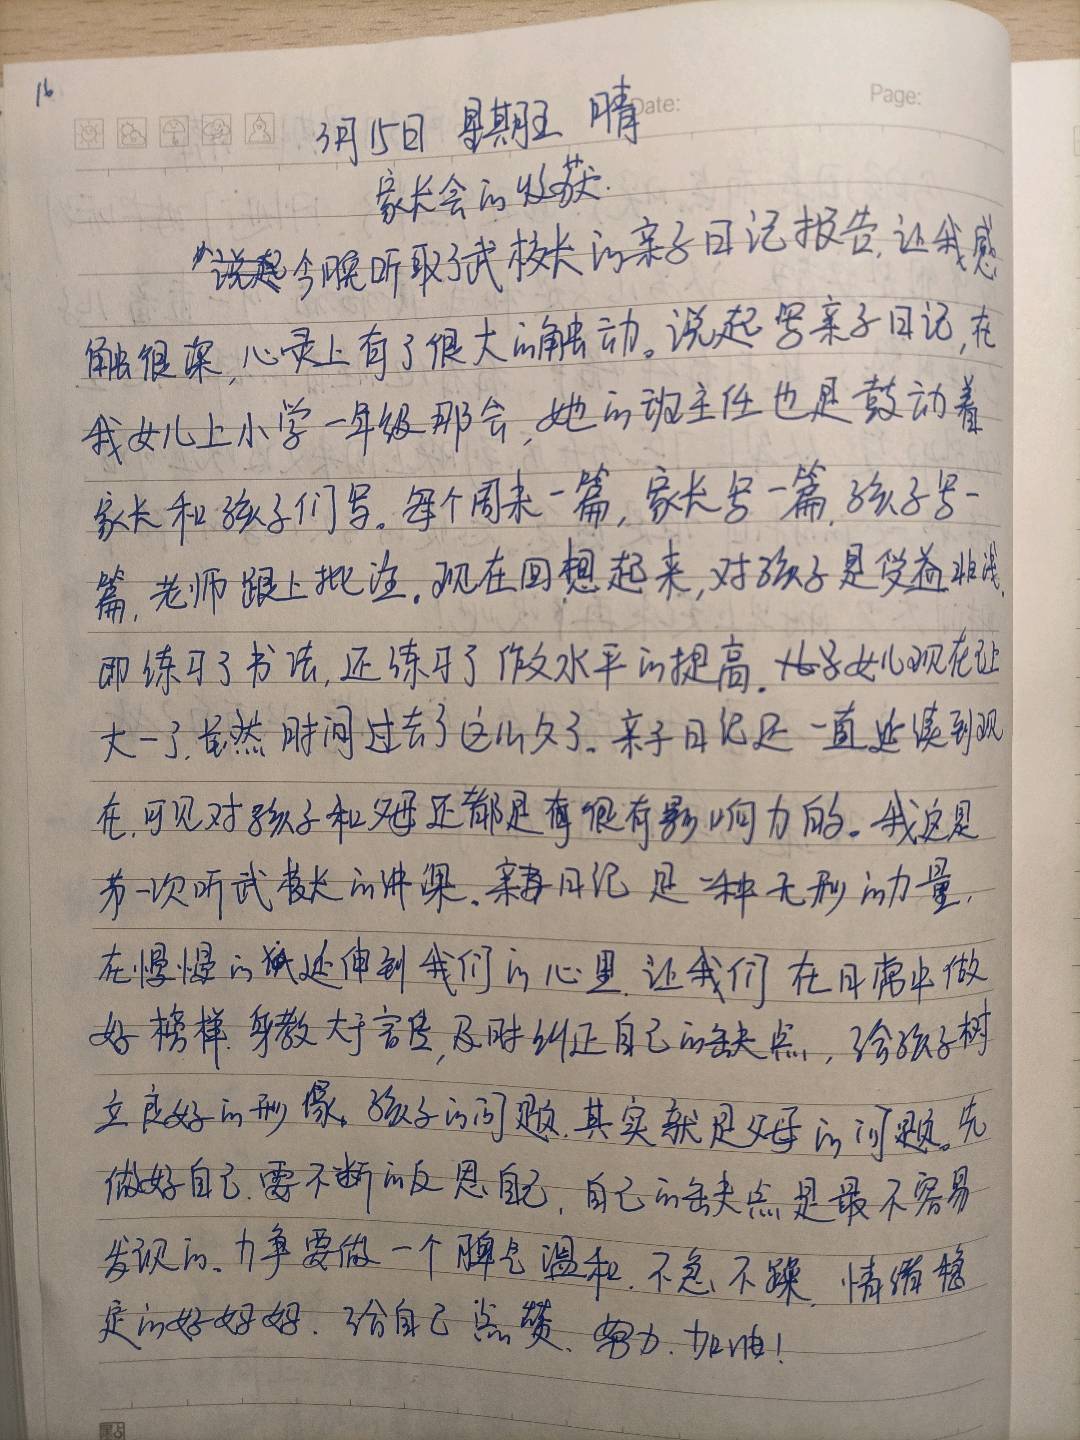 16
Date:
Page:
3月15日 星期五 晴
家长会的收获.
今晚听取了武校长的亲子日记报告,让我感
触很深,心灵上有了很大的触动。说起写亲子日记,在
我女儿上小学一年级那会,她的班主任也是鼓动着
家长和孩子们写。每个周末一篇,家长写一篇,孩子写一
篇,老师跟上批注。现在回想起来,对孩子是受益非浅.
即练习了书法,还练习了作文水平的提高。女儿现在让
大一了,虽然时间过去了这么久了。亲子日记还一直延读到现
在,可见对孩子和父母还都是有很有影响力的。我这是
第一次听武校长的讲课。亲子日记是一种无形的力量,
在慢慢的延伸到我们的心里,让我们在日常中做
好榜样.身教大于言传,及时纠正自己的缺点,给孩子树
立良好的形像。孩子的问题,其实就是父母的问题。先
做好自己.要不断的反思自己,自己的缺点是最不容易
发现的。力争要做一个脾气温和.不急不躁,情绪稳
定的好妈妈.给自己点赞、努力.加油!